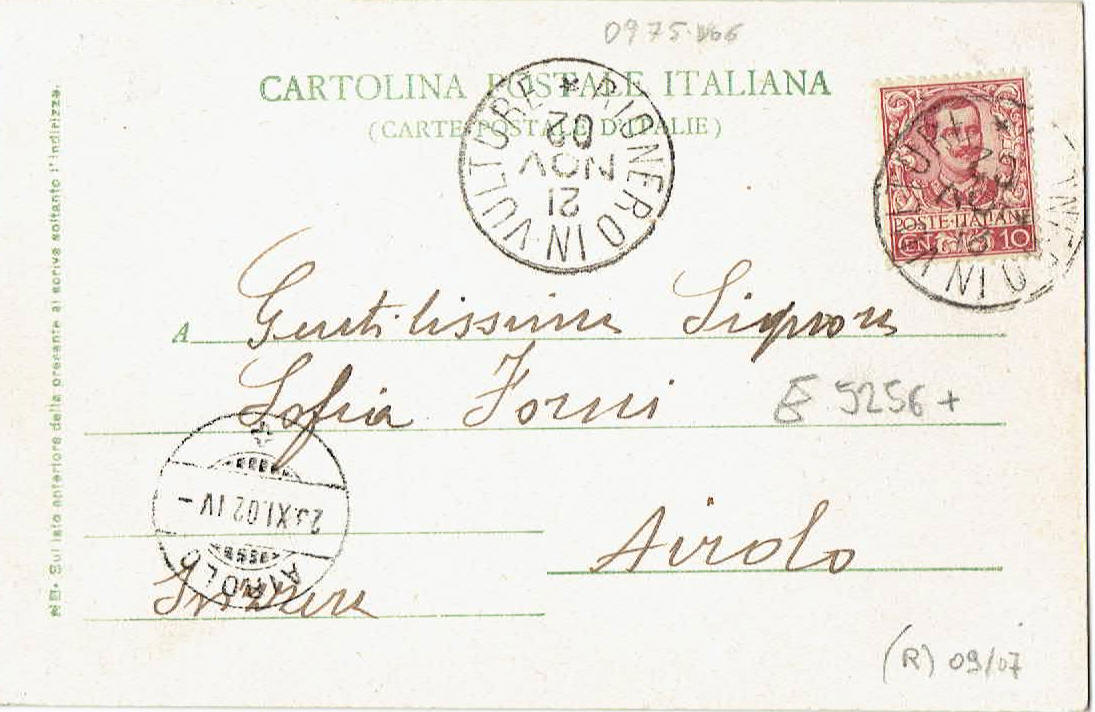 0975
CARTOLINA POSTALE ITALIANA
(CARTE POSTALE D'ITALIE)
RIONERO IN VULTURE
21
NOV
02
POSTE·ITALIANE
CENT. 10
IN V
NB· Sul lato anteriore della presente si scrive soltanto l'indirizzo.
A Gentilissima Signora
Sofia Forni
E 5256+
23.XI.02 IV-
AIROLO
Airolo
Svizzera
(R) 09/07